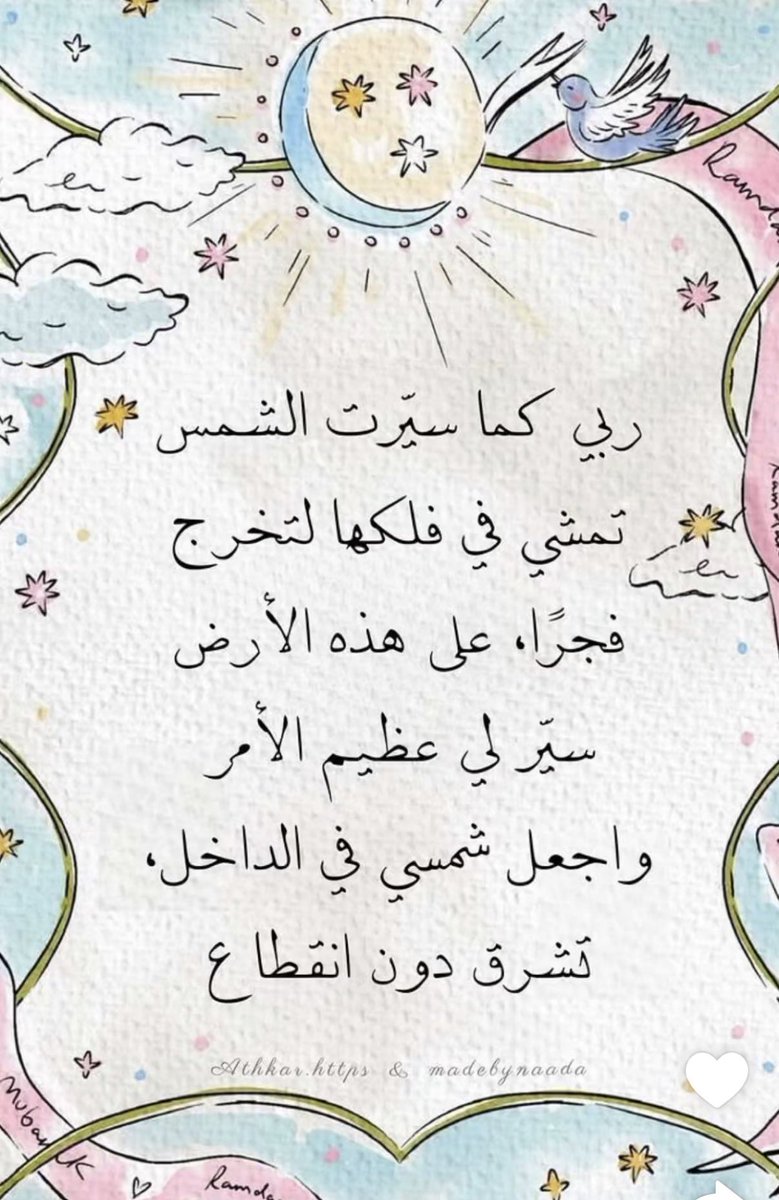 ربي كما سيّرت الشمس
تمشي في فلكها لتخرج
فجرًا، على هذه الأرض
سيّر لي عظيم الأمر
واجعل شمسي في الداخل،
تشرق دون انقطاع
Athkar.https & madebynaada
Mubarak